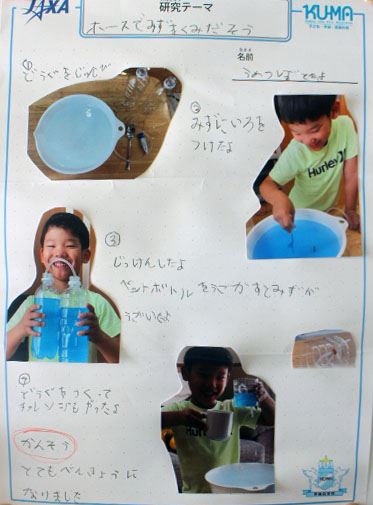 JAXA
研究テーマ
KU-MA
ホースでみずをくみだそう
名前
① どうぐをじゅんび
② みずにいろを
つけたよ
Hurley
③
じっけんしたよ
ペットボトルをうごかすとみずが
うごいたよ
④
どうぐをつくって
チャレンジもやったよ
かんそう
とてもべんきょうに
なりました